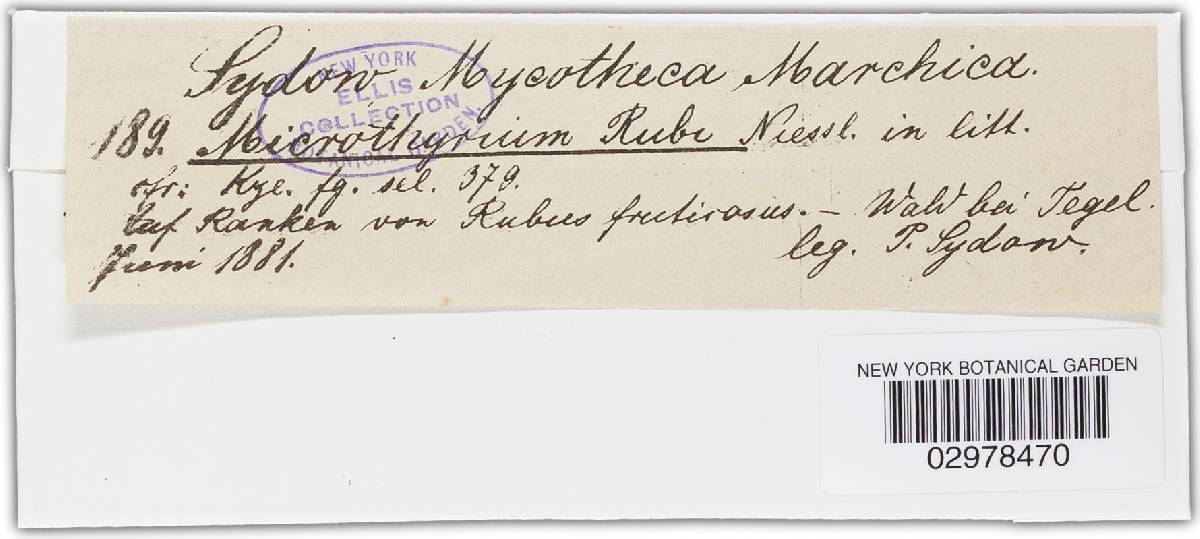 Sydow Mycotheca Marchica.
189. Microthyrium Rubi Niessl. in litt.
cfr: Kze. fg. sel. 379.
Auf Ranken von Rubus fruticosus. — Wald bei Tegel.
Juni 1881. leg. P. Sydow.
NEW YORK
ELLIS
COLLECTION
BOTANICAL GARDEN.
NEW YORK BOTANICAL GARDEN
02978470